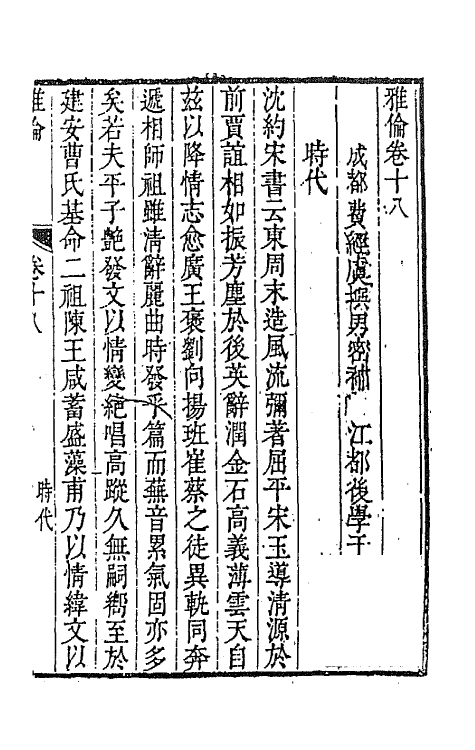 雅倫卷十八
成都費經虞撰男密補　江都後學于
時代
沈約宋書云東周末造風流彌著屈平宋玉導清源於
前賈誼相如振芳塵於後英辭潤金石高義薄雲天自
茲以降情志愈廣王褒劉向揚班崔蔡之徒異軌同奔
遞相師祖雖清辭麗曲時發乎篇而蕪音累氣固亦多
矣若夫平子艷發文以情變絕唱高蹤久無嗣嚮至於
建安曹氏基命二祖陳王咸蓄盛藻甫乃以情緯文以
雅倫　卷十八　時代